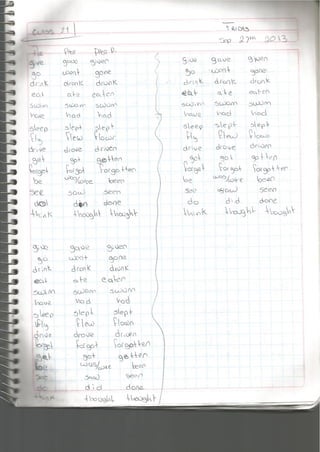 CLASS 21
FRIDAY
Sep 27th 2013
Pre Pas Pas P.
give gave given
go went gone
drink drank drunk
eat ate eaten
swim swam swum
have had had
sleep slept slept
fly flew flown
drive drove driven
get got gotten
forget forgot forgotten
be was/were been
see saw seen
do did done
think thought thought
give gave given
go went gone
drink drank drunk
eat ate eaten
swim swam swum
have had had
sleep slept slept
fly flew flown
drive drove driven
get got gotten
forget forgot forgotten
be was/were been
see saw seen
do did done
think thought thought
give gave given
go went gone
drink drank drunk
eat ate eaten
swim swam swum
have had had
sleep slept slept
fly flew flown
drive drove driven
forget forgot forgotten
get got gotten
be was/were been
see saw seen
do did done
think thought thought